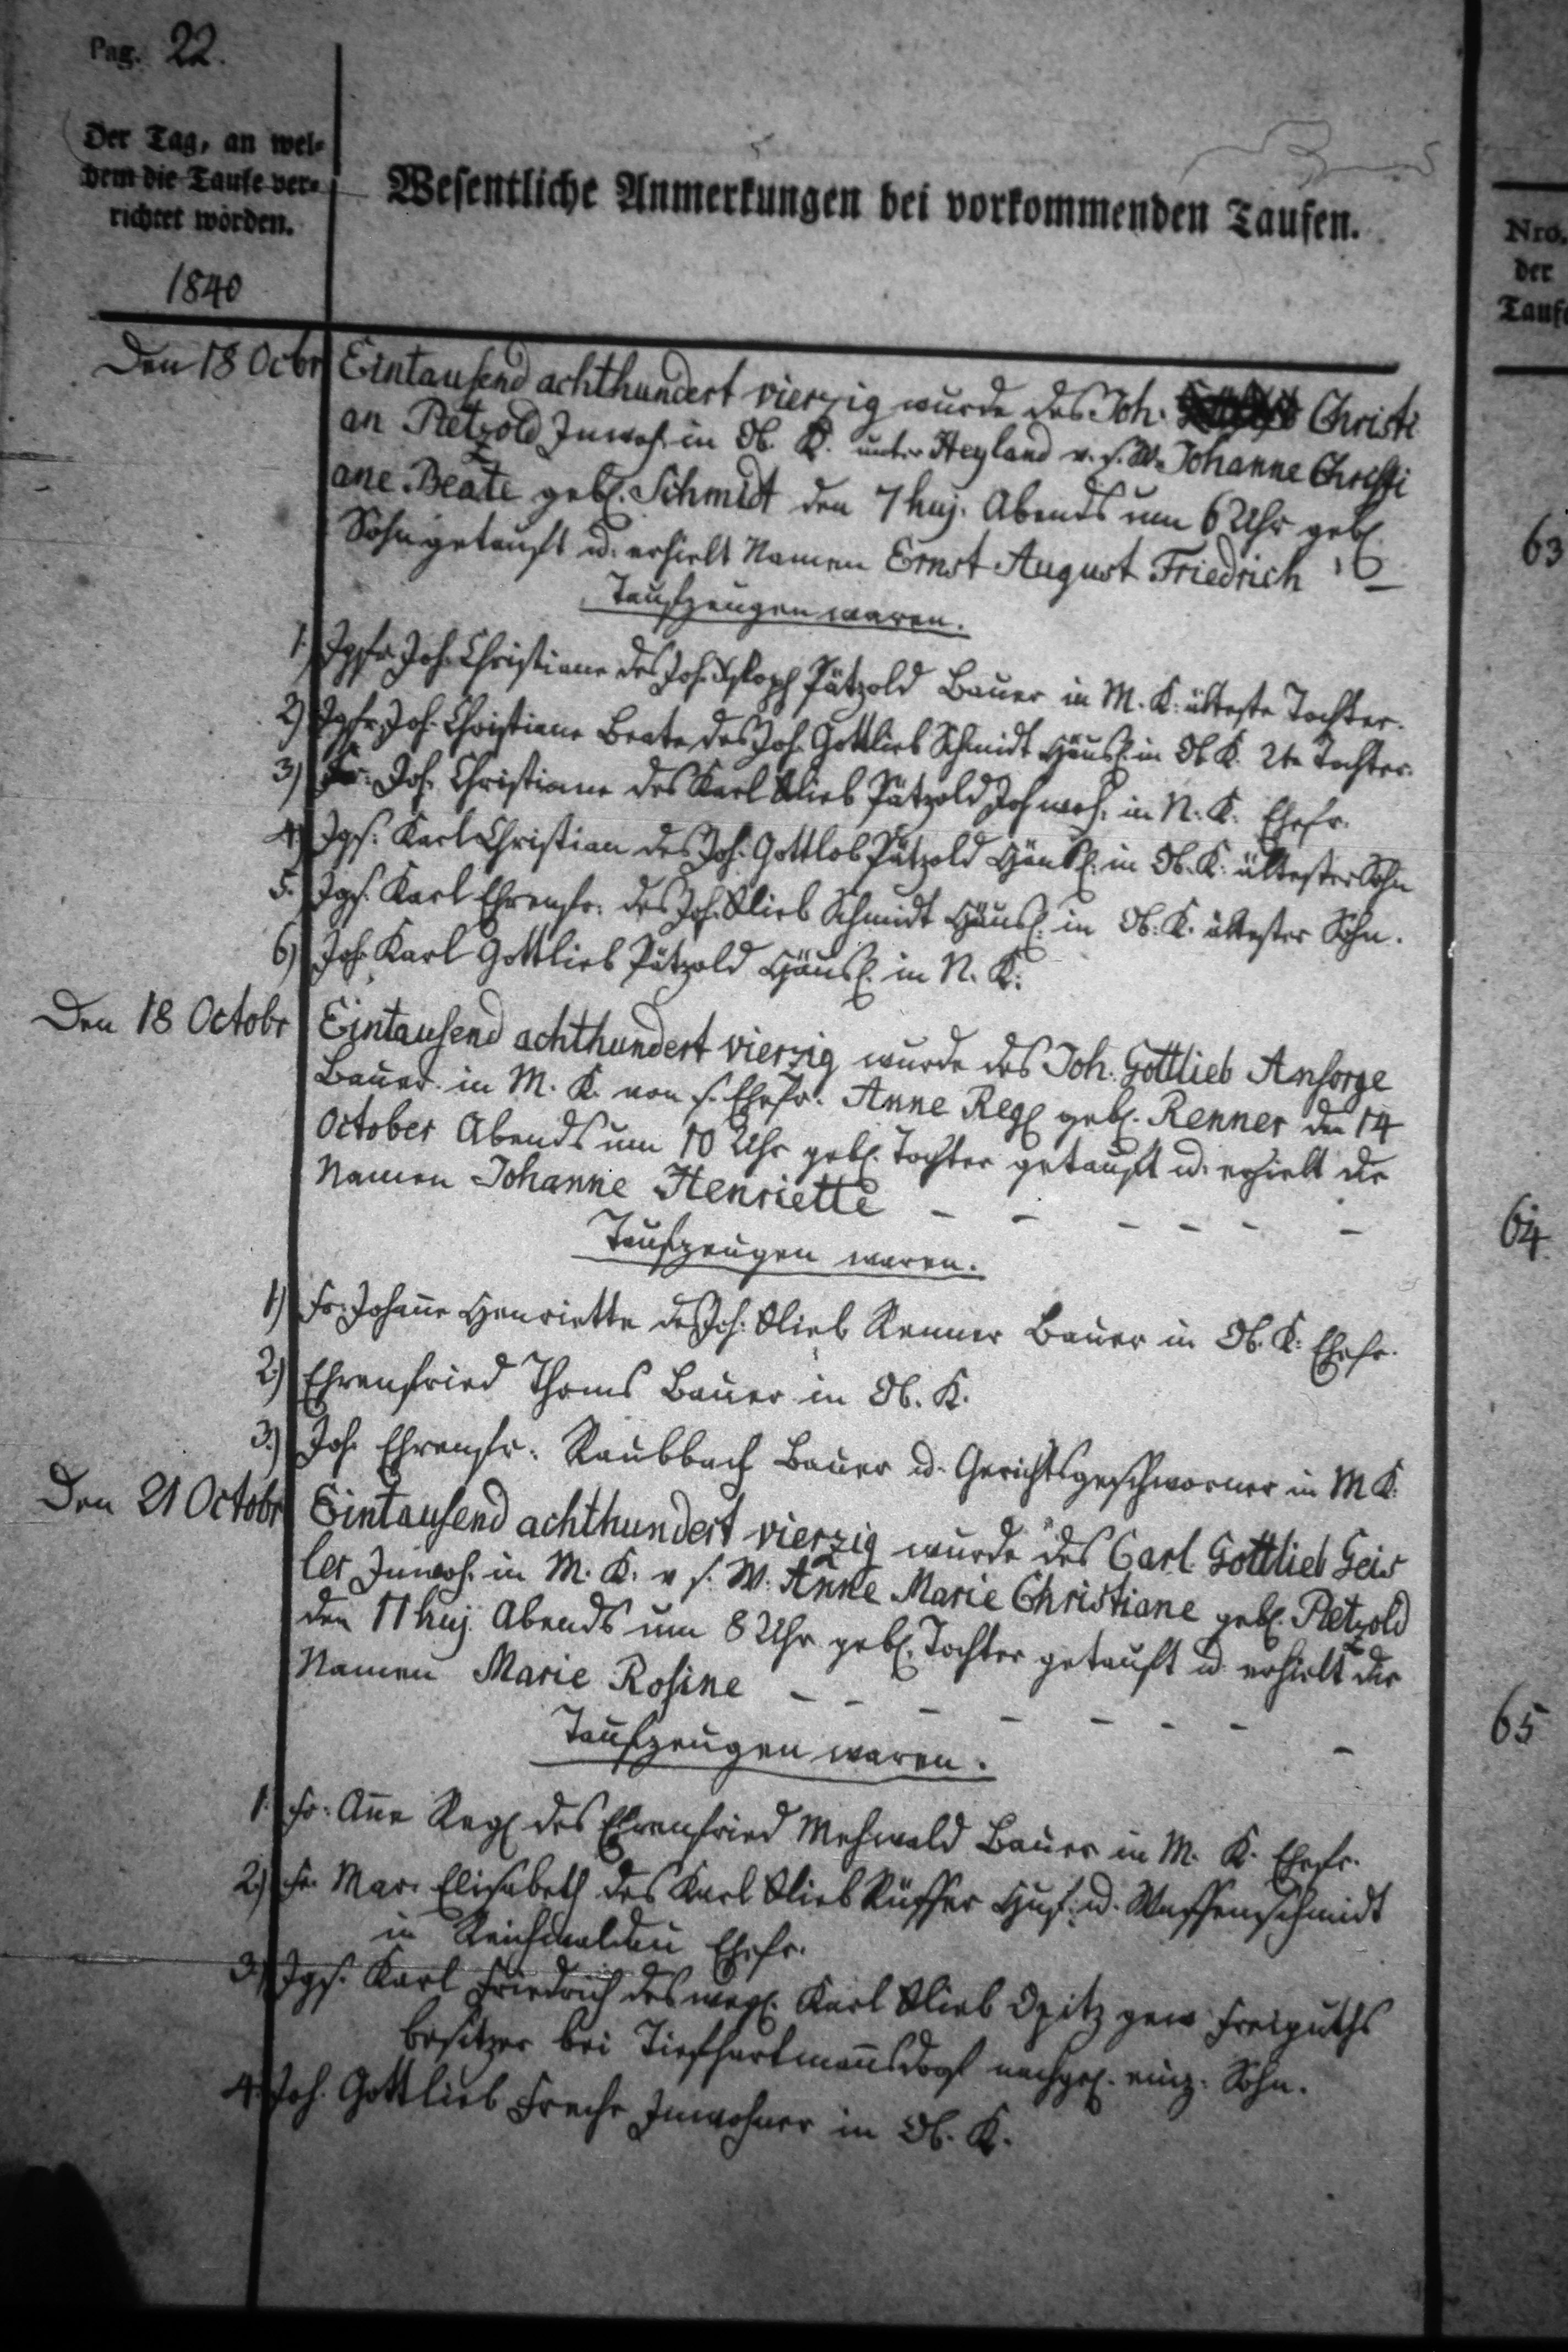 Pag. 22.
Der Tag, an wel-
chem die Taufe ver-
richtet worden.
Wesentliche Anmerkungen bei vorkommenden Taufen.
Nro.
der
Taufe
1840
Den 18 Octbr Eintausend achthundert vierzig wurde des Joh. Christi
an Pätzold Inwoh. in Ob. K. unter Heyland v. s. W. Johanne Christi
ane Beate geb. Schmidt den 7 huj. Abends um 6 Uhr geb.
Sohn getauft u. erhielt Namen Ernst August Friedrich
63
Taufzeugen waren.
1.) Jgfr. Joh. Christiane des Joh. Pätzold Bauer in M. K. älteste Tochter.
2) Jgfr. Joh. Christiane Beate des Joh. Gottlieb Schmidt Häusl. in Ob K. 2te Tochter.
3) Fr. Joh. Christiane des Karl Glieb Pätzold in N. K. Ehefr.
4) Jgs. Karl Christian des Joh. Gottlob Pätzold Häusl. in Ob. K. ältester Sohn
5. Jgs. Karl Ehrenfr. des Joh. Glieb Schmidt Häusl. in Ob. K. ältester Sohn.
6) Joh. Karl Gottlieb Pätzold Häusl. in N. K.
Den 18 Octobr Eintausend achthundert vierzig wurde des Joh. Gottlieb Ansorge
Bauer in M. K. von s. Ehefr. Anne Reg. geb. Renner den 14
October Abends um 10 Uhr geb. Tochter getauft u. erhielt die
Namen Johanne Henriette – – – – – –
64
Taufzeugen waren.
1) Fr. Johanne Henriette des Joh. Glieb Renner Bauer in Ob. K. Ehefr.
2) Ehrenfried Thoms Bauer in Ob. K.
3.) Joh. Ehrenfr. Raubbach Bauer u. Gerichtsgeschworner in M K.
Den 21 Octobr Eintausend achthundert vierzig wurde des Carl Gottlieb Geis
ler Inwoh. in M. K. v s. W. Anne Marie Christiane geb. Pätzold
den 11 huj. Abends um 8 Uhr geb. Tochter getauft u. erhielt die
Namen Marie Rosine – – – – – – – –
65
Taufzeugen waren.
1. Fr. Anne Reg. des Ehrenfried Mehwald Bauer in M. K. Ehefr.
2.) Fr. Mar. Elisabeth des Karl Glieb Küffer Huf- u. Waffenschmidt
in Reichwaldau Ehefr.
3.) Jgs. Karl Friedrich des weyl. Karl Glieb Opitz gew. Freiguths
besitzer bei Tiefhartmannsdorf nachgel. einz. Sohn.
4. Joh. Gottlieb Freche Inwohner in Ob. K.